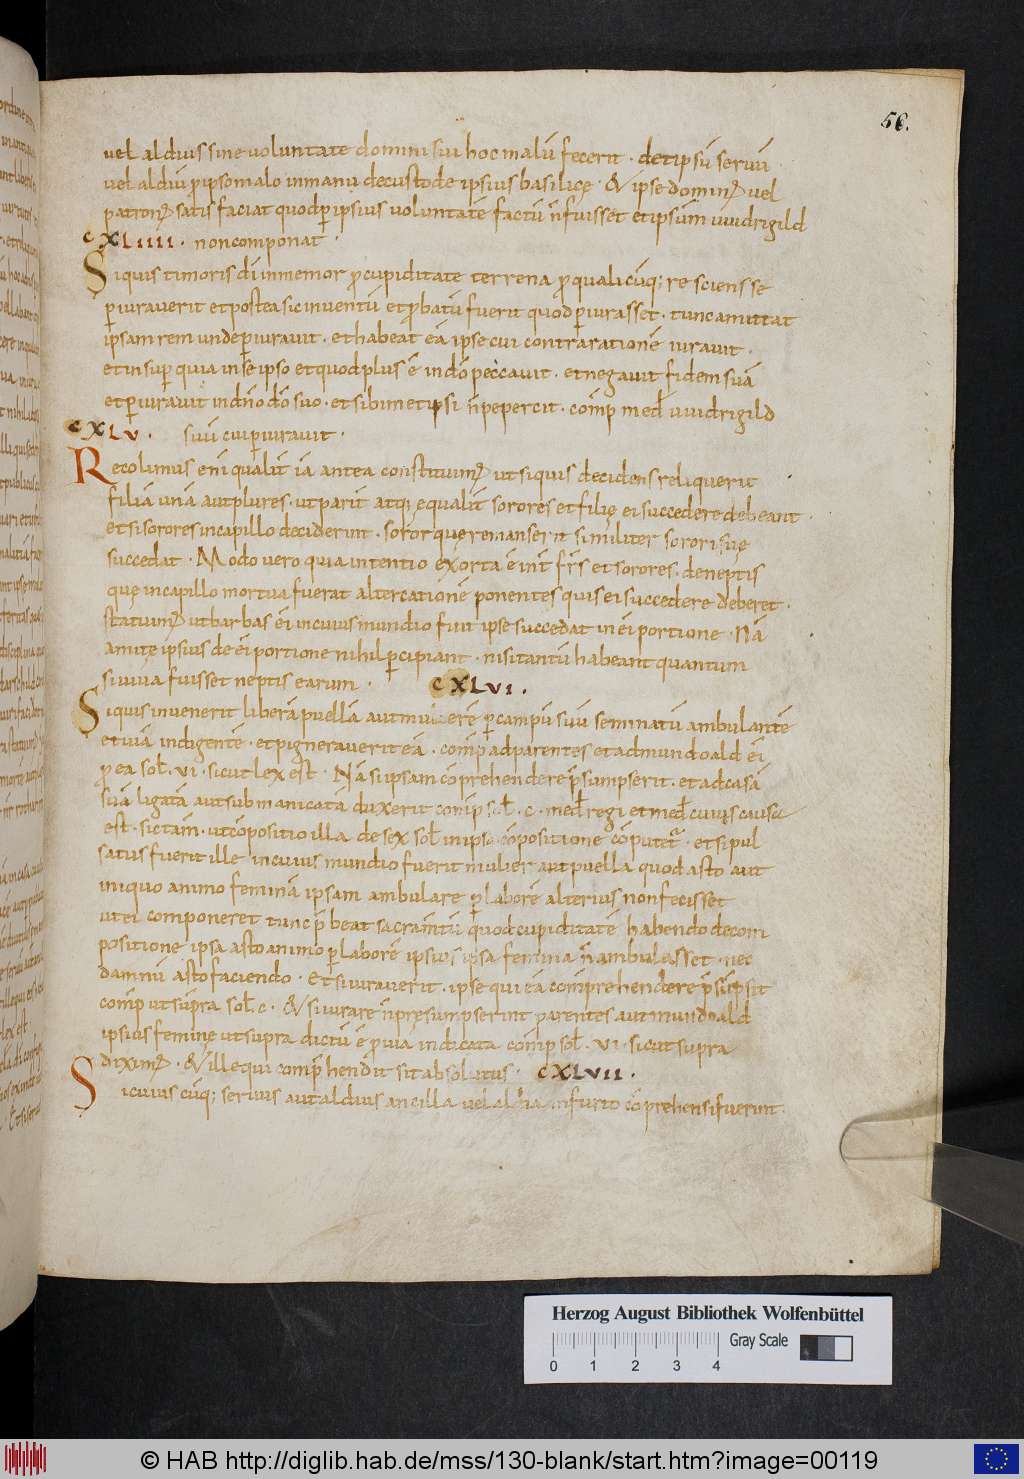 56.
vel aldius sine voluntate domini sui hoc malū fecerit · det ipsū servū
vel aldiū ꝓ ipso malo in manu de custode ipsius basilicę · & ipse domin⁊ vel
patron⁊ satisfaciat quod ꝑ ipsius voluntatē factū n̄ fuisset et ipsum uuidrigild
CXLIIII · non componat ·
Siquis timoris dī inmemor ꝓ cupiditate terrena ꝓ quali cūq; re sciens se
ꝑiuraverit et postea sic inventū et ꝓbatū fuerit quod ꝑiurasset · tunc amittat
ipsam rem unde ꝑiuravit · et habeat eā ipse cui contra rationē iuravit ·
et insup̄ quia in se ipso et quod plus ē in dō peccavit · et negavit fidem suā
et ꝑiuravit in dn̄o dō suo · et sibimet ipsi n̄ pepercit · comp̄ med̄ uuidrigild
CXLV · suū cui ꝑiuravit ·
Recolimus enī qualit̄ iā antea constituim⁊ ut siquis decidens reliquerit
filiā unā aut plures · ut parit̄ atq; equalit̄ sorores et filię ei succedere debeant ·
et si sorores in capillo deciderint · soror quę remanserit similiter sorori suę
succedat · Modo vero quia intentio exorta ē int̄ fr̄s et sorores · de neptis
quę in capillo mortua fuerat altercationē ponentes quis ei succedere deberet ·
statuim⁊ ut barbas eī in cuius mundio fuit ipse succedat in eī portione · Nā
amitę ipsius de eī portione nihil ꝑcipiant · nisi tantū habeant quantum
si viva fuisset neptis earum · CXLVI ·
Siquis invenerit liberā puellā aut mulierē ꝑ campū suū seminatū ambulantē
et viā indigentē · et pigneraverit eā · comp̄ ad parentes et ad mundoald eī
ꝓ ea sol̄ · VI · sicut lex est · Nā si ipsam cōprehendere p̄sumpserit · et ad casā
suā ligatā aut submanicatā duxerit comp̄ sol̄ · C · med̄ regi et med̄ cuius causa
est · sic tam̄ · ut cōpositio illa de sex sol̄ in ipsa cōpositione cōputet̄ · et si pul
satus fuerit ille in cuius mundio fuerit mulier aut puella quod asto aut
iniquo animo feminā ipsam ambulare ꝑ laborē alterius non fecisset
ut ei componeret tunc p̄beat sacramtū quod cupiditatē habendo decom
positione ipsa asto animo ꝑ laborē ipsius ipsa femina n̄ ambulasset · nec
damnū asto faciendo · Et si iuraverit · ipse qui eā comprehendere p̄sūpsit
comp̄ ut sup̄ra sol̄ · C · & si iurare n̄ presumpserint parentes aut mundoald
ipsius feminę ut supra dictū ē ꝓ via indicata comp̄ sol̄ · VI · sicut supra
diximus · & ille qui comp̄hendit sit absolutus · CXLVII ·
Si cuius cūq; servus aut aldius ancilla vel aldia in furto cōprehensi fuerint ·
Herzog August Bibliothek Wolfenbüttel
Gray Scale
0 1 2 3 4
© HAB http://diglib.hab.de/mss/130-blank/start.htm?image=00119